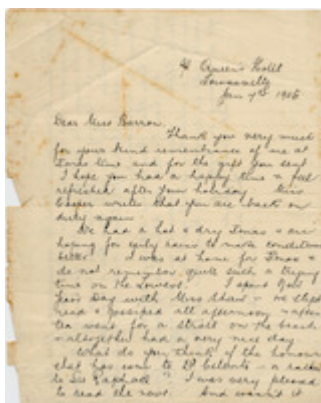 Queen's Hotel
Townsville
Jan 7th
Dear Miss Barron,
Thank you very much
for your kind remembrance of me at
Xmas time and for the gift you sent
I hope you had a happy time & feel
refreshed after your holiday Miss
writes that you are back on
duty again
We had a hot & dry Xmas & are
hoping for early rains to make conditions
better. I was at home for Xmas &
do not remember quite such a trying
time on the I spent New
Years Day with Miss Shaw - we slept
read & gossiped all afternoon & after
tea went for a stroll on the beach
- altogether had a very nice day
What do you think of the honour
that has come to Dr - a
to I was very pleased
to read the news. And wasn't it